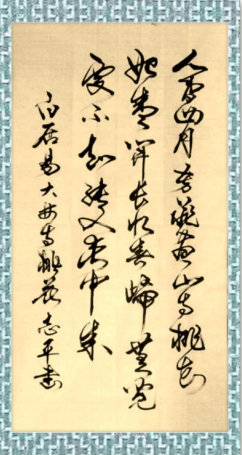 人間四月芳菲盡山寺桃花
始盛開長恨春歸無覓
處不知轉入此中來
白居易大林寺桃花 志平書